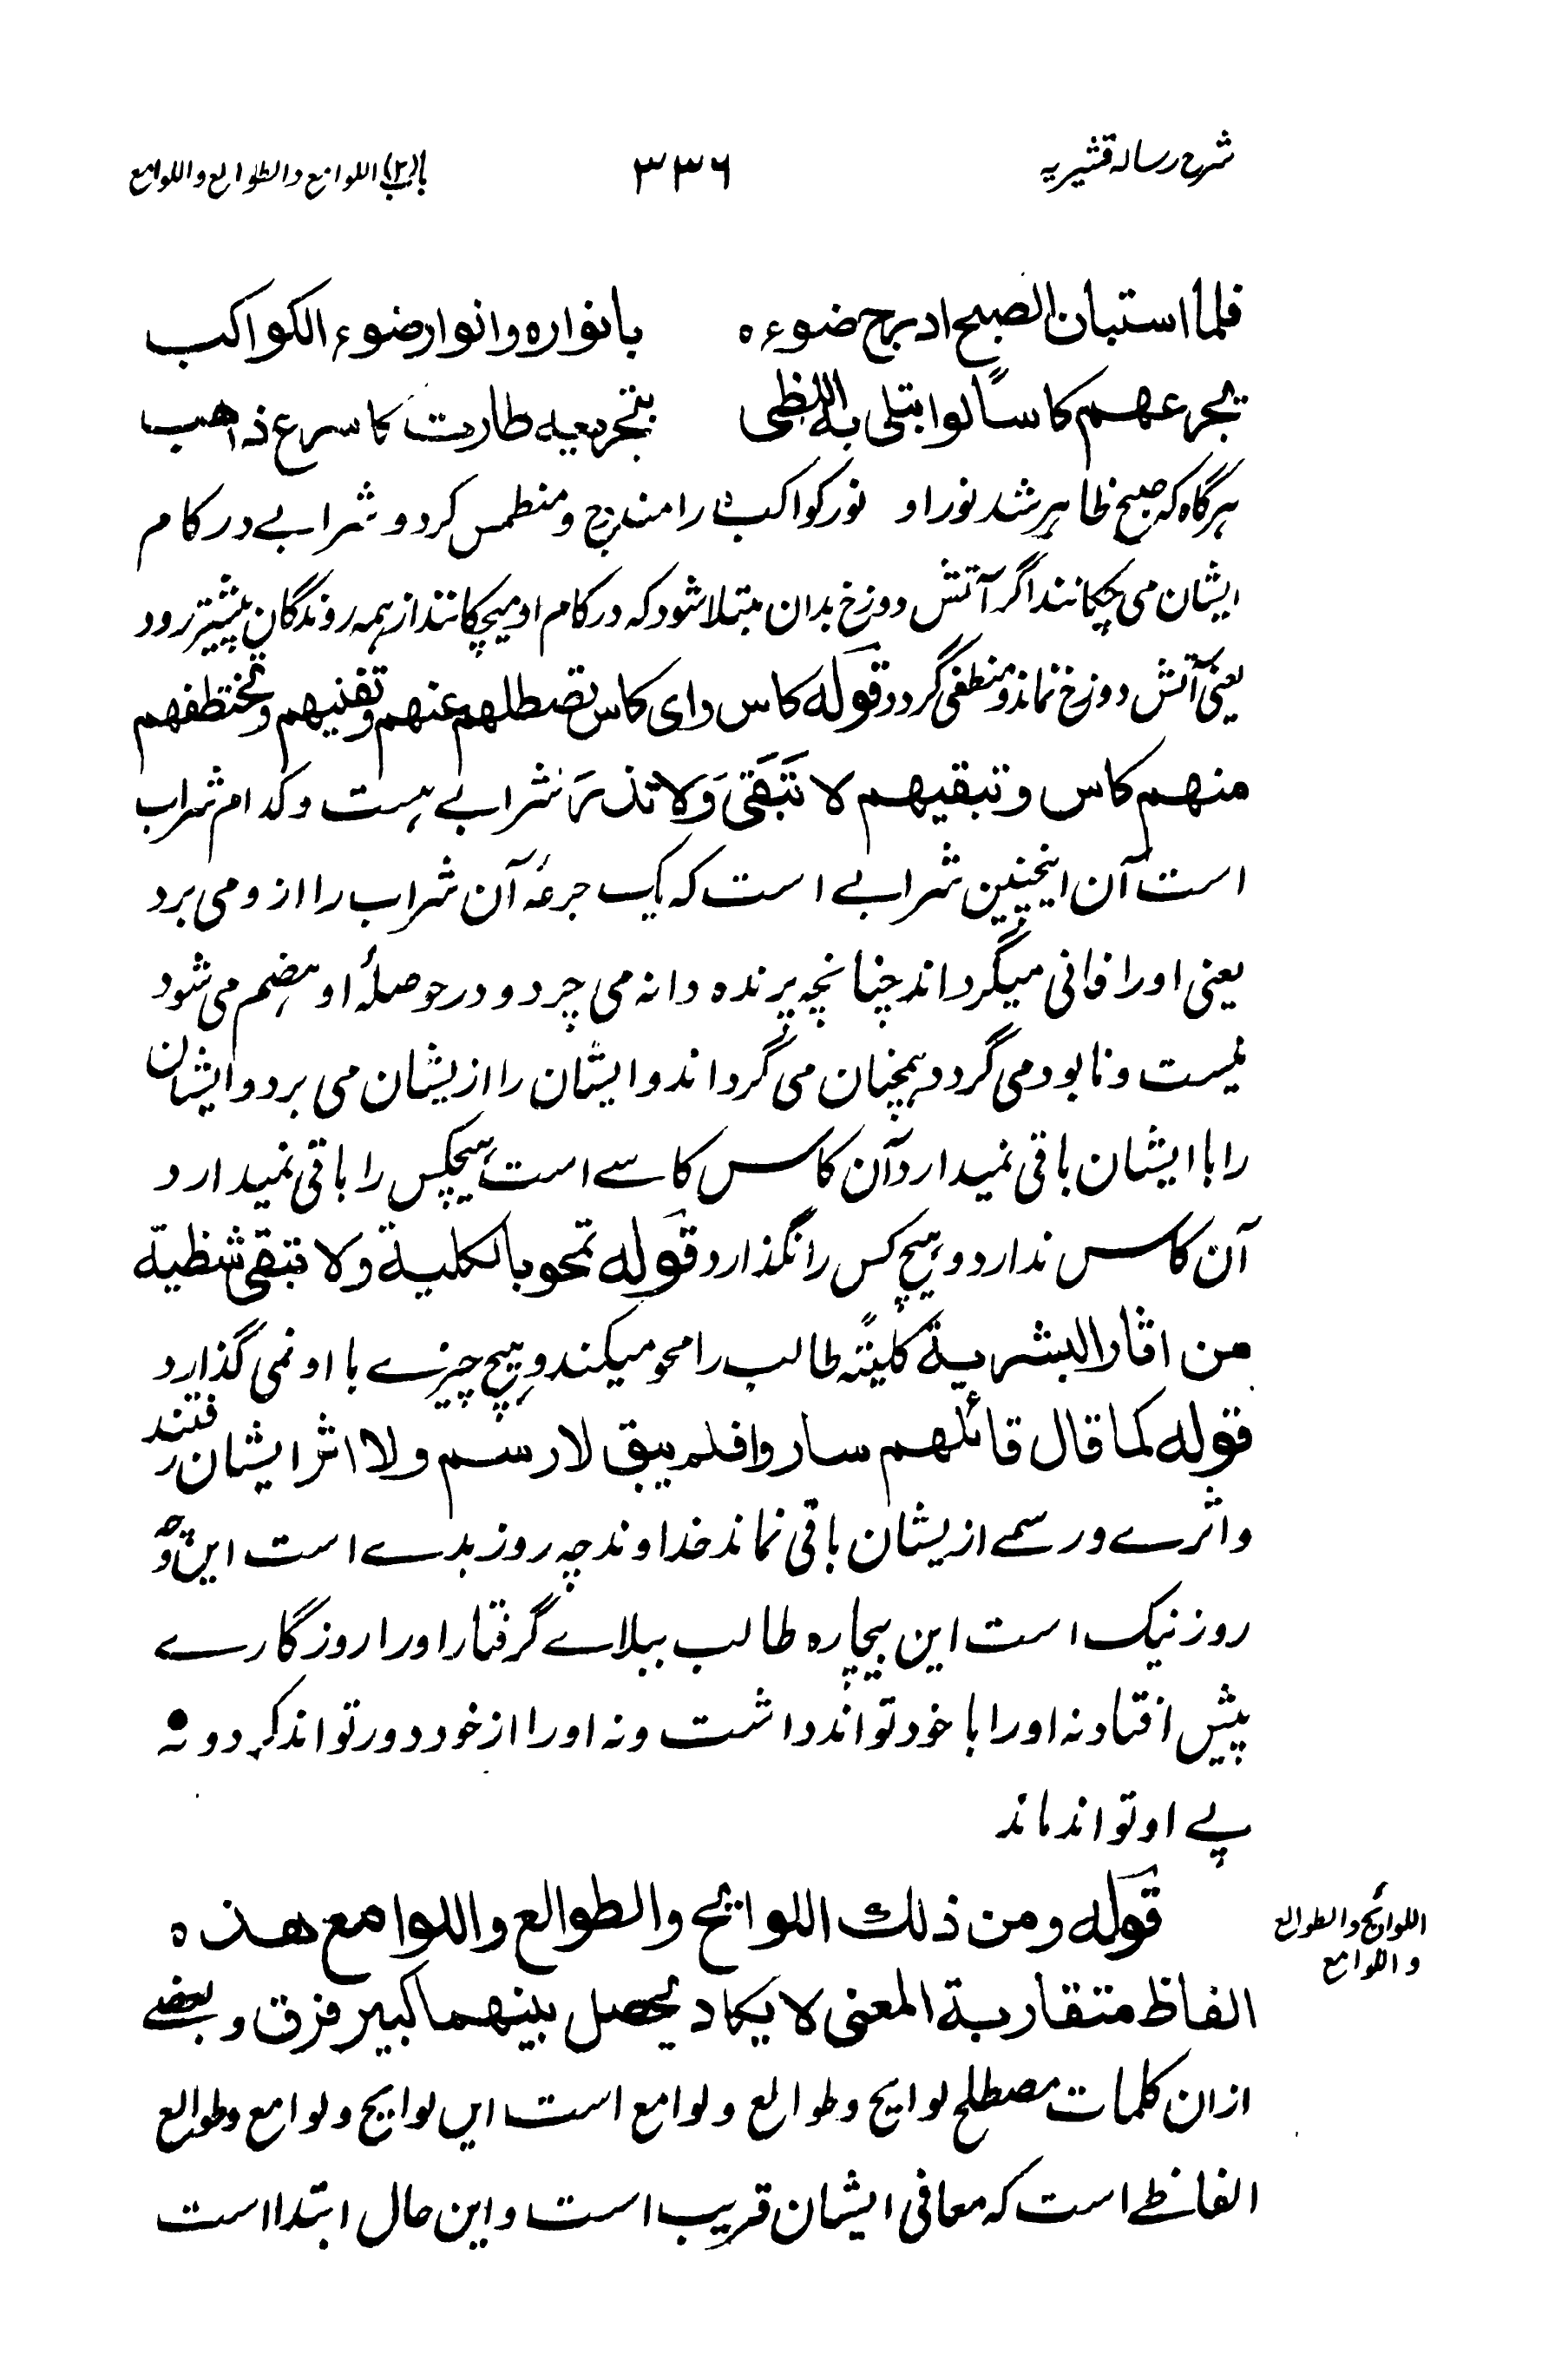 شرح رساله قشیریه ۳۳۶ باب (۲) اللوائح والطوالع واللوامع
فلما استبان الصبح ادرج ضوءه بانواره وانوار ضوء الکواکب
یجرعهم کاسًا لو ابتلی به اللظی بتجریعه طارت کاسرع ذاهب
هرگاه که صبح ظاهر شد نور او نور کواکب را مندرج و منطمس کرد و شرابے در کام
ایشان می چکانند اگر آتش دوزخ بدان مبتلا شود که در کام او میچکانند از همه روندگان پیشتر رود
یعنی آتش دوزخ نماند و منطفی گردد قوله کاس و ای کاس تصطلهم عنهم و تفنیهم و تختطفهم
منهم کاس و تبقیهم لا تَبَقیَ وَلا تذرَ شرابے هست و کدام شراب
است آن اینچنین شرابے است که یک جرعهٔ آن شراب را از و می برد
یعنی او را فانی میگرداند چنانچه پرنده دانه می چرد و در حوصلهٔ او هضم می شود
نیست و نابود می گردد همچنان می گرداند و ایشان را ازیشان می برد و ایشان
را با ایشان باقی نمیدارد آن کاس کاسے است هیچکس را باقی نمیدارد
آن کاس ندارد و هیچ کس را نگذارد قوله تمحو بالکلیة ولا تبقی شظیة
من اثار البشریة کلیتًه طالب را محو میکند و هیچ چیزے با او نمی گذارد
قوله کما قال قائلهم ساروا فلم یبق لا رسم ولا اثر ایشان رفتند
و اثرے و رسمے ازیشان باقی نماند خداوند چه روز بدے است این و چه
روز نیک است این بیچاره طالب ببلاے گرفتار او را روزگارے
پیش افتاد نه او را با خود تواند داشت و نه او را از خود دور تواند کرد و نه
پے او تواند ماند
قوله ومن ذلك اللوایح والطوالع واللوامع هذه
اللوائح والطوالع
واللوامع
الفاظ متقاربة المعنی لا یکاد یحصل بینهما کبیر فرق و بعضے
ازان کلمات مصطلح لوایح و طوالع و لوامع است این لوایح و لوامع و طوالع
الفاظے است که معانی ایشان قریب است و این حال ابتدا است